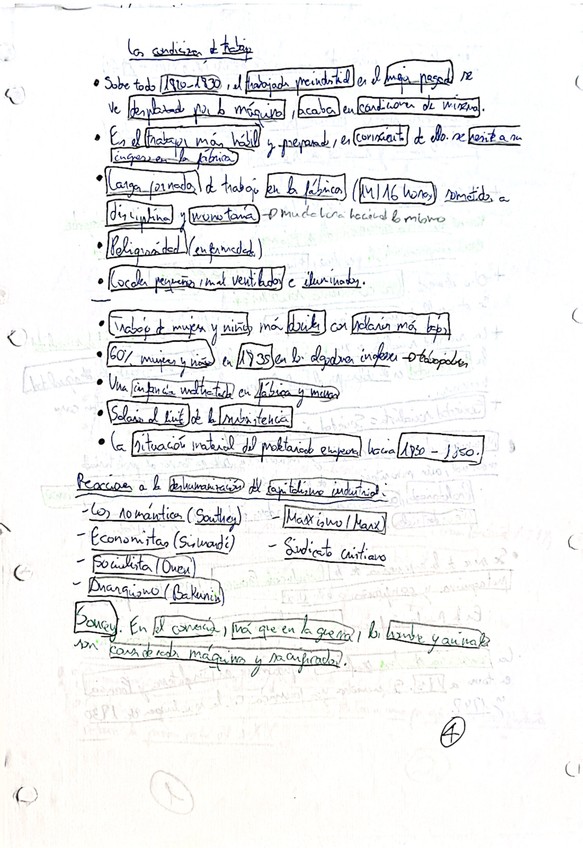 Las condiciones de trabajo
• Sobre todo 1820-1830, el trabajador preindustrial en el mejor pagado se
ve desplazado por la máquina, acaba en condiciones de miseria.
• Es el trabajo más hábil y preparado, es consciente de ello. se resiste a su
ingreso en la fábrica
• Larga jornada de trabajo en las fábricas (14/16 horas) sometidos a
disciplina y monotonía → haciendo lo mismo
• Peligrosidad (enfermedades)
• Locales pequeños, mal ventilados e iluminados.
• Trabajo de mujeres y niños, más dóciles con salarios más bajos
• 60% mujeres y niños en 1835 en los algodoneros ingleses →
• Una infancia maltratada en fábricas y minas
• Salario al límite de la subsistencia
• La situación material del proletariado empeora hacia 1830 - 1850.
Reacciones a la deshumanización del capitalismo industrial:
- Los románticos (Southey)
- Economistas (Sismondi)
- Socialista (Owen)
- Anarquismo (Bakunin)
- Marxismo (Marx)
- Sindicato cristiano
. En el comercio, más que en la guerra, los hombres y animales
son considerados máquinas y sacrificados.
4